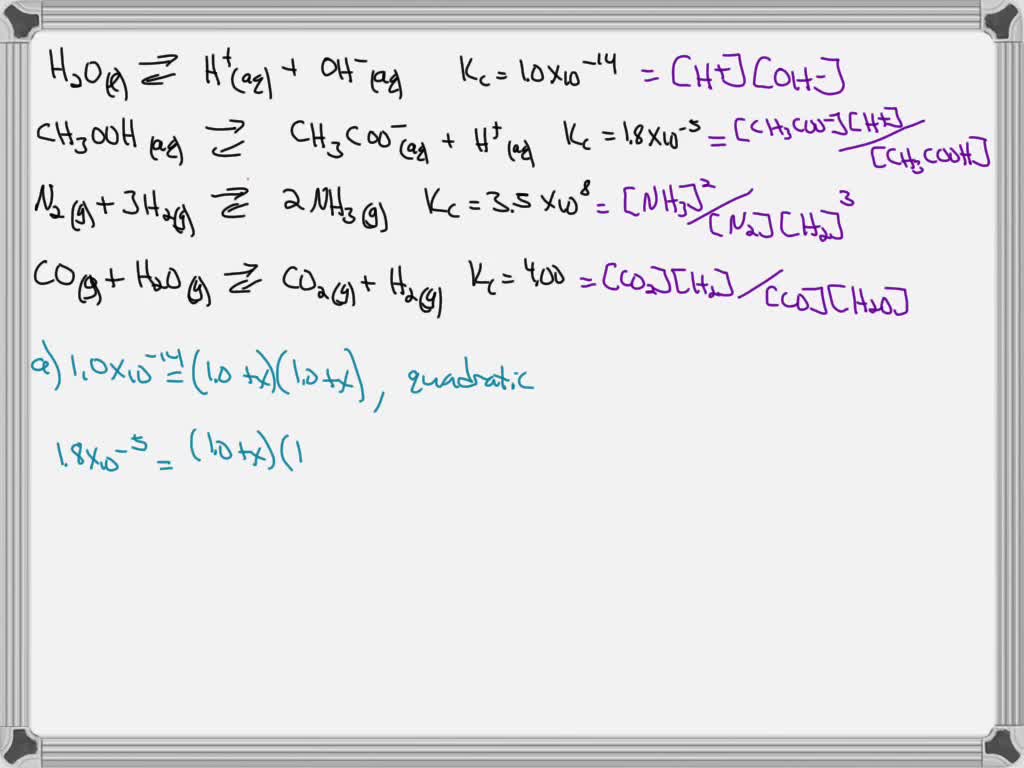 H₂O(l) ⇌ H⁺(aq) + OH⁻(aq) Kc = 1.0x10⁻¹⁴ = [H+][OH-]
CH₃OOH(aq) ⇌ CH₃COO⁻(aq) + H⁺(aq) Kc = 1.8x10⁻⁵ = [CH₃COO⁻][H+]/[CH₃COOH]
N₂(g) + 3H₂(g) ⇌ 2NH₃(g) Kc = 3.5x10⁸ = [NH₃]²/[N₂][H₂]³
CO(g) + H₂O(g) ⇌ CO₂(g) + H₂(g) Kc = 4.00 = [CO₂][H₂]/[CO][H₂O]
a) 1.0x10⁻¹⁴ = (1.0+x)(1.0+x), quadratic
1.8x10⁻⁵ = (1.0+x)(1